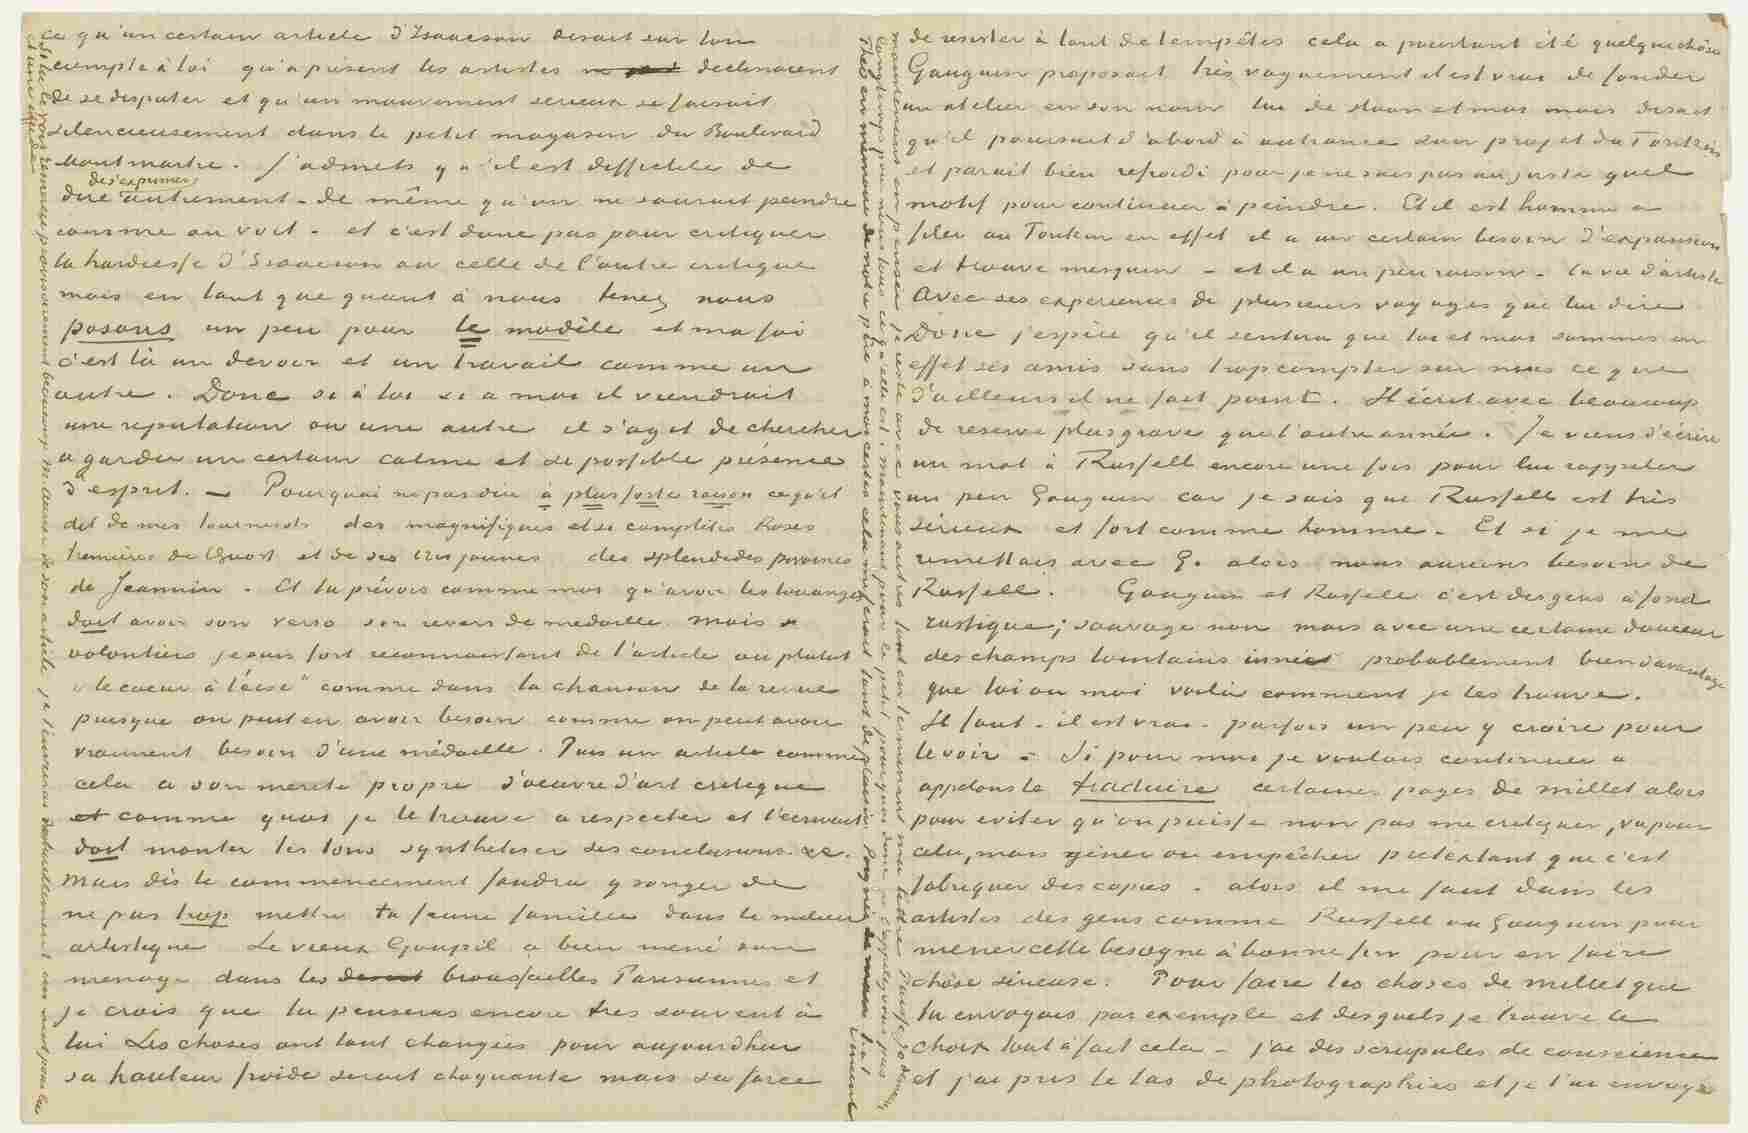 ce qu'un certain article d'Isaacson disait sur ton
compte à toi qu'à présent les artistes declinaient
de se disputer et qu'un mouvement serieux se faisait
silencieusement dans le petit magasin du Boulevard
Montmartre. J'admets qu'il est difficile de
de s'exprimer
dire autrement – de même qu'on ne saurait peindre
comme on voit – et c'est donc pas pour critiquer
la hardiesse d'Isaacson ou celle de l'autre critique
mais en tant que quant à nous tenez nous
posons un peu pour le modèle et ma foi
c'est là un devoir et un travail comme un
autre. Donc si à toi si a moi il viendrait
une reputation ou une autre il s'agit de chercher
a garder un certain calme et si possible présence
d'esprit. – Pourquoi ne pas dire à plus forte raison ce qu'il
dit de mes tournesols des magnifiques et si complètes Roses
tremières de Quost et de ses iris jaunes des splendides pivoines
de Jeannin. Et tu prévois comme moi qu'avoir les louanges
doit avoir son verso son revers de medaille. Mais
volontiers je suis fort reconnaissant de l'article ou plutot
"le coeur à l'aise" comme dans la chanson de la revue
puisque on peut en avoir besoin comme on peut avoir
vraiment besoin d'une médaille. Puis un article comme
cela a son merite propre d'oeuvre d'art critique
comme quoi je le trouve a respecter et l'écrivain
doit monter les tons synthetiser ses conclusions &c.
Mais dès le commencement faudra y songer de
ne pas trop mettre ta jeune famille dans le milieu
artistique Le vieux Goupil a bien mené son
menage dans les broussailles Parisiennes et
je crois que tu penseras encore très souvent à
lui Les choses ont tant changées pour aujourdhui
sa hauteur froide serait choquante mais sa force
de resister à tant de tempêtes cela a pourtant été quelquechose
Gauguin proposait très vaguement il est vrai de fonder
un atelier en son nom lui de Haan et moi mais disait
qu'il poursuit d'abord à outrance son projet du Tonkin
et parait bien refroidi pour je ne sais pas au juste quel
motif pour continuer à peindre. Et il est homme a
filer au Tonkin en effet il a un certain besoin d'expansion
et trouve mesquin – et il a un peu raison – la vie d'artiste
Avec ses experiences de plusieurs voyages que lui dire
Donc j'espère qu'il sentira que toi et moi sommes en
effet ses amis sans trop compter sur nous ce que
d'ailleurs il ne fait point. Il écrit avec beaucoup
de reserve plus grave que l'autre année. Je viens d'écrire
un mot à Russell encore une fois pour lui rappeler
un peu Gauguin car je sais que Russell est très
sérieux et fort comme homme. Et si je me
remettais avec G. alors nous aurions besoin de
Russell. Gauguin et Russell c'est des gens à fond
rustique; sauvage non mais avec une certaine douceur
des champs lointains innée probablement bien davantage
que toi ou moi voilà comment je les trouve.
Il faut – il est vrai – parfois un peu y croire pour
le voir – Si pour moi je voulais continuer a
appelons le traduire certaines pages de Millet alors
pour eviter qu'on puisse non pas me critiquer, va pour
cela, mais gêner ou empêcher pretextant que c'est
fabriquer des copies – alors il me faut dans les
artistes des gens comme Russell ou Gauguin pour
mener cette besogne à bonne fin pour en faire
chose sérieuse. Pour faire les choses de Millet que
tu envoyais par exemple et desquels je trouve le
choix tout à fait cela – j'ai des scrupules de conscience
et j'ai pris le tas de photographies et je l'ai envoyé